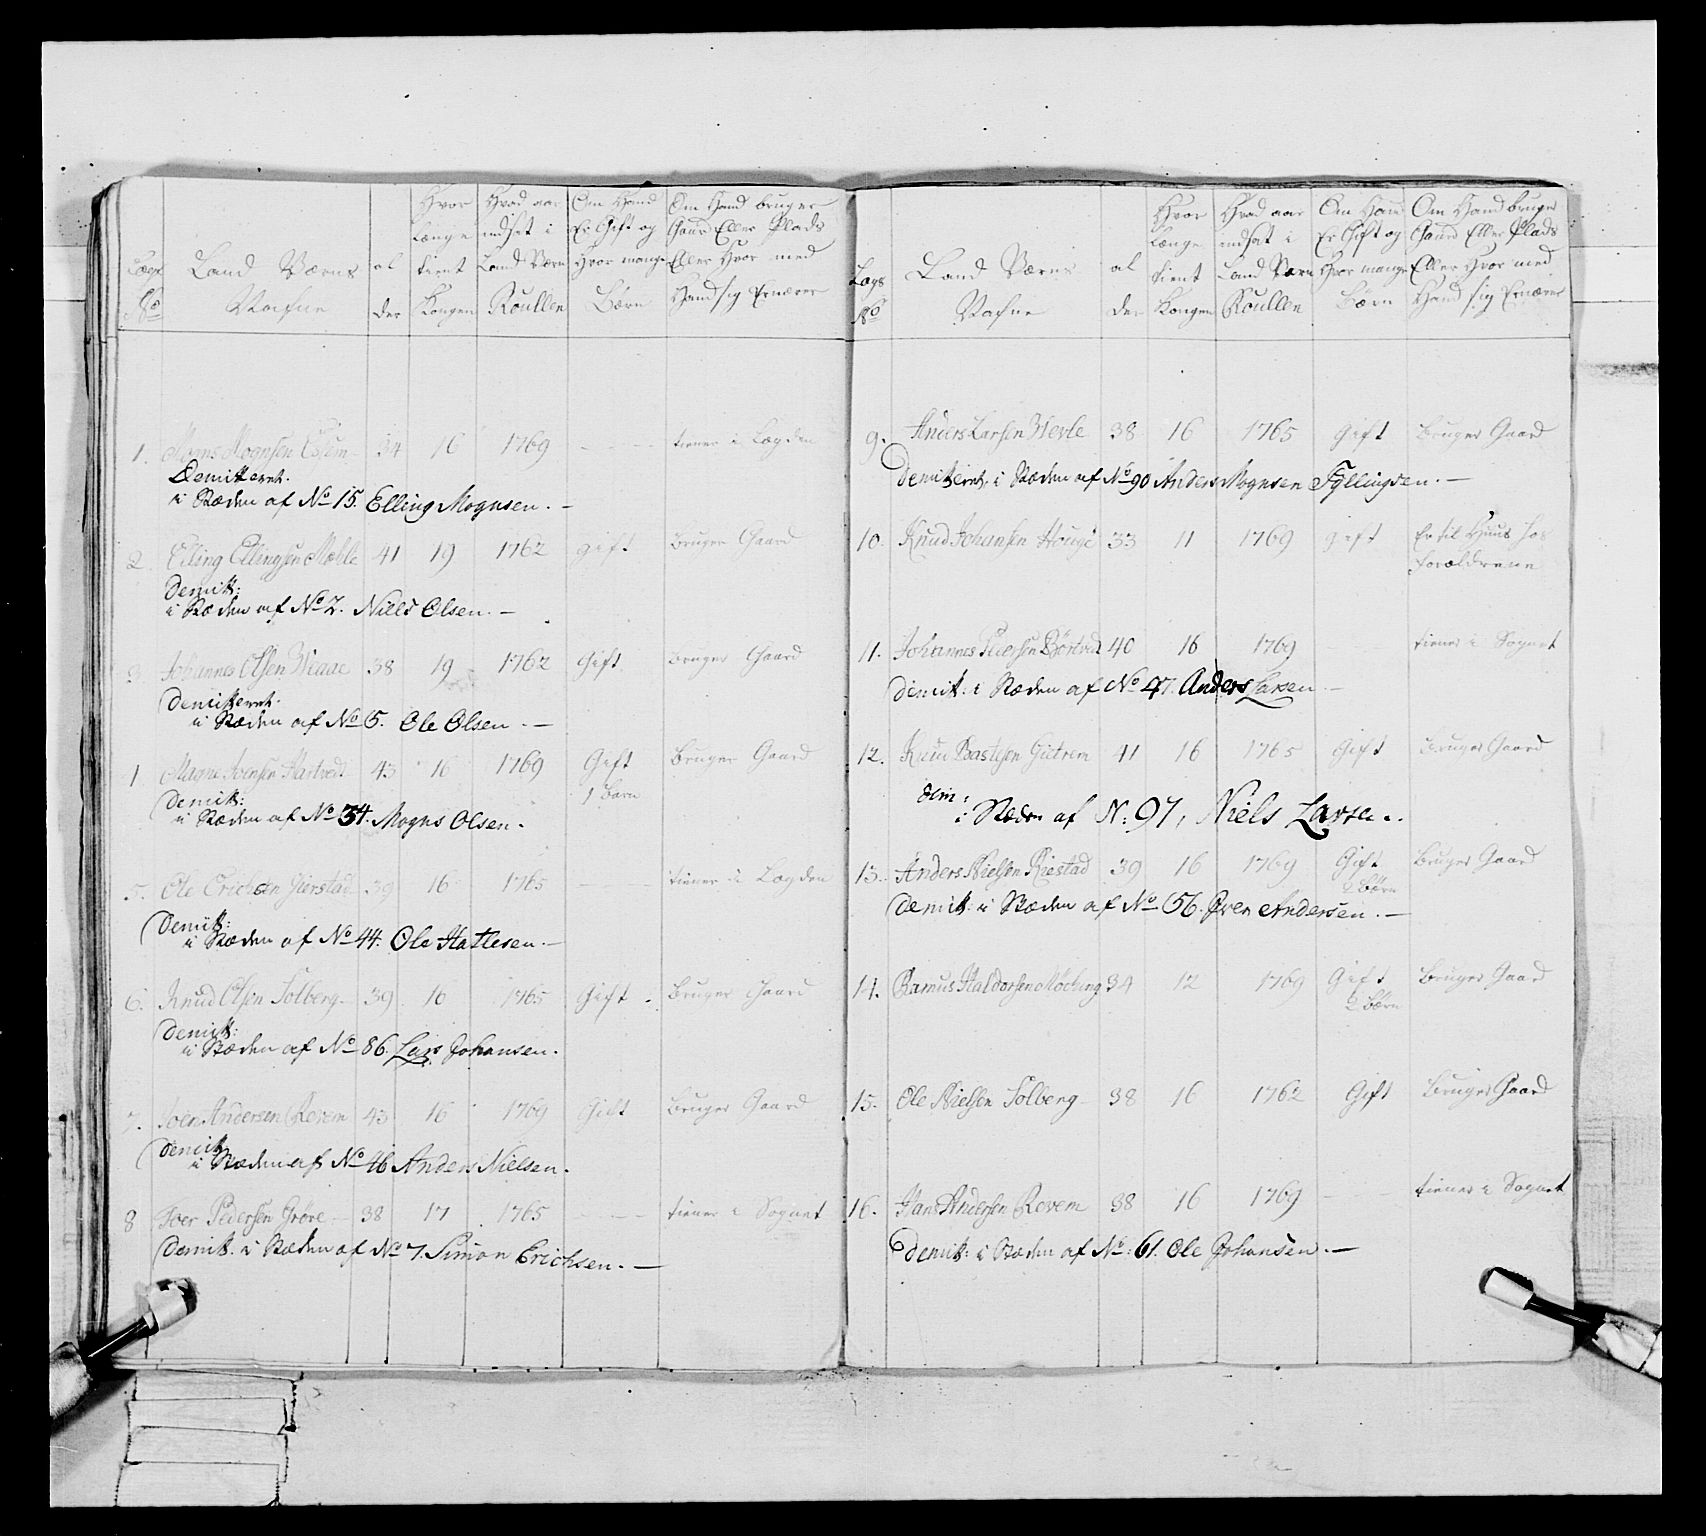 Lægs No
Land Værns Nafne
al der
Hvor længe tient Kongen
Hvad aar indsat i Land Værn Roullen
Om Hand Er Gift og Hvor mange Børn
Om Hand bruger Gaard Eller Plads Eller Hvor med Hand sig Ernærer
1. Mons Mognsen 34 16 1769 — tiener i Lægden
Demitteret.
i Stæden af No 15. Elling Mognsen. —
2. Elling Ellingsen Mæhle 41 19 1762 gift bruger Gaard
Demitt:
i Stæden af No 2. Niels Olsen. —
3. Johannes Olsen 38 19 1762 Gift bruger Gaard
Demitteret.
i Stæden af No 5. Ole Olsen. —
4 Magne Iversen Hartvedt 43 16 1769 Gift bruger Gaard
1 barn
Demitt:
i Stæden af No 34. Mogns Olsen.
5. Ole Erichsen Gierstad 39 16 1765 — tiener i Lægden
Demitt:
i Stæden af No 44. Ole Hatlesen. —
6. Knud Olsen Solberg 39 16 1765 Gift. bruger Gaard
Demitt:
i Stæden af No 86. Lars Johansen.
7. Joen Andersen Revem 43 16 1769 Gift bruger Gaard
Demitt
i Stæden af No 46 Anders Nielsen.
8 Joer Pedersen Grøre 38 17 1765 — tiener i Sognet
Demitt. i Stæden af No 7. Simon Erichsen. —
Lægs No
Land Værns Nafne
al der
Hvor længe tient Kongen
Hvad aar indsat i Land Værn Roullen
Om Hand Er Gift og Hvor mange Børn
Om Hand bruger Gaard Eller Plads Eller Hvor med Hand sig Ernærer
9. Anders Larsen Herle 38 16 1765 gift bruger Gaard
Demitteret. i Stæden af No 90 Anders Mognsen Fyllingsen. —
10. Knud Johansen Houge 33 11 1769 gift Er til Huus hos
forældrene
11. Johannes Pedersen Børtved 40 16 1769 tiener i Sognet
Demitt: i Stæden af No 47. Anders Larsen —
12. Knud Bastesen Gietrem 41 16 1765 Gift bruger Gaard
dem:
i Stæden af N: 97, Niels Larsen.
13. Anders Nielsen Riestad 39 16 1769 Gift bruger Gaard
2 børn
Demitt: i Stæden af No 56. Iver Andersen. —
14. Ramus Haldorsen Møching 34 12 1769 Gift bruger Gaard
2 børn
15. Ole Nielsen Solberg 38 16 1762 Gift bruger Gaard
16. Hans Andersen Revem 38 16 1769 — tiener i Sognet
Demitt: i Stæden af No: 61. Ole Johansen. —